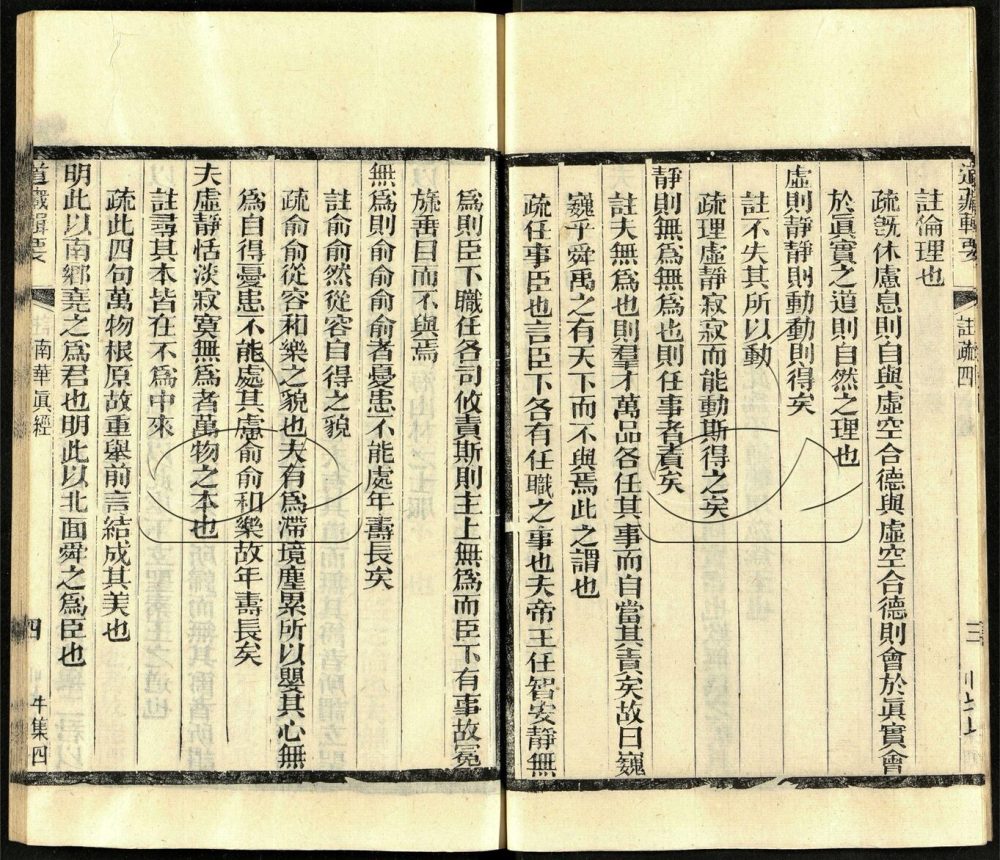 道藏輯要 註疏四 三
註倫理也
疏旣休慮息則自與虛空合德與虛空合德則會於眞實會
於眞實之道則自然之理也
虛則靜靜則動動則得矣
註不失其所以動
疏理虛靜寂寂而能動斯得之矣
靜則無爲無爲也則任事者責矣
註夫無爲也則羣才萬品各任其事而自當其責矣故曰巍
巍乎舜禹之有天下而不與焉此之謂也
疏任事臣也言臣下各有任職之事也夫帝王任智安靜無
爲則臣下職任各司攸責斯則主上無爲而臣下有事故冕
旒垂目而不與焉
無爲則俞俞俞俞者憂患不能處年壽長矣
註俞俞然從容自得之貌
疏俞俞從容和樂之貌也夫有爲滯境塵累所以嬰其心無
爲自得憂患不能處其慮俞俞和樂故年壽長矣
夫虛靜恬淡寂寞無爲者萬物之本也
註尋其本皆在不爲中來
疏此四句萬物根原故重舉前言結成其美也
明此以南鄉堯之爲君也明此以北面舜之爲臣也
道藏輯要 南華眞經 四 集四